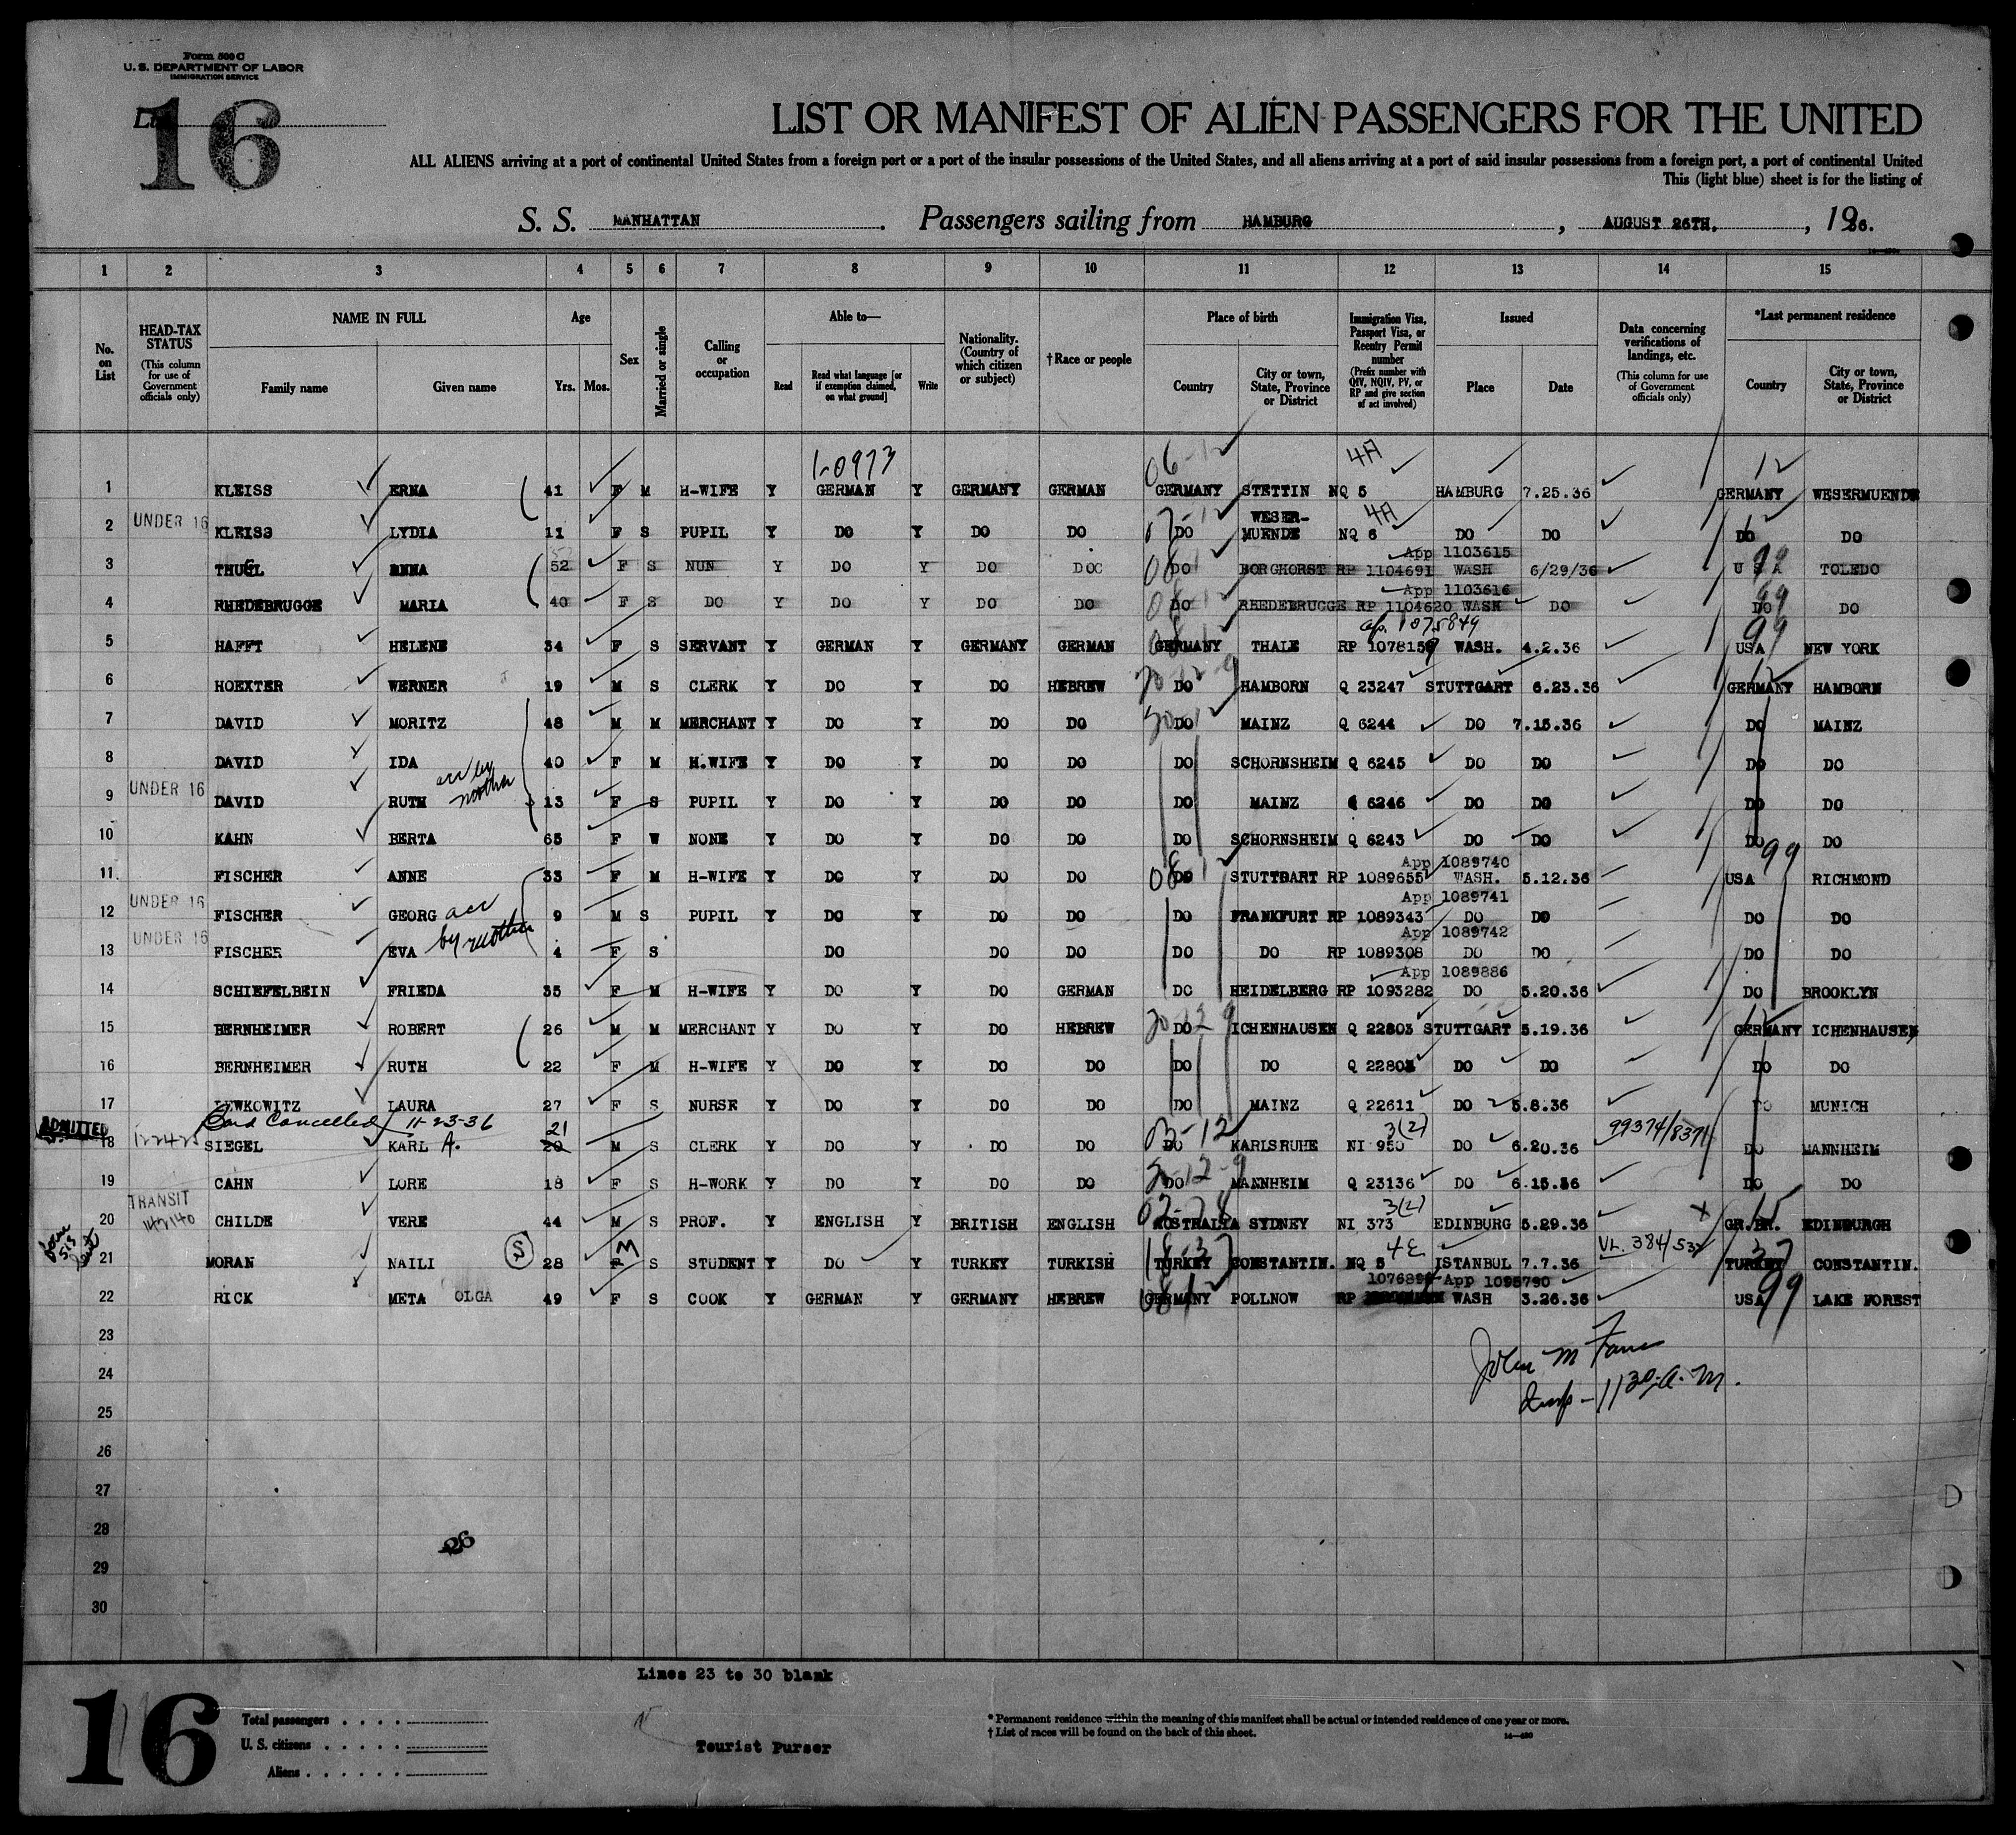 Form 500 C
U. S. DEPARTMENT OF LABOR
IMMIGRATION SERVICE
16
LIST OR MANIFEST OF ALIEN PASSENGERS FOR THE UNITED
ALL ALIENS arriving at a port of continental United States from a foreign port or a port of the insular possessions of the United States, and all aliens arriving at a port of said insular possessions from a foreign port, a port of continental United
This (light blue) sheet is for the listing of
S. S. MANHATTAN. Passengers sailing from HAMBURG, AUGUST 26TH., 1936.
1 2 3 4 5 6 7 8 9 10 11 12 13 14 15
No. on List
HEAD-TAX STATUS (This column for use of Government officials only)
NAME IN FULL Family name Given name
Age Yrs. Mos.
Sex
Married or single
Calling or occupation
Able to— Read Read what language [or if exemption claimed, on what ground] Write
Nationality. (Country of which citizen or subject)
†Race or people
Place of birth Country City or town, State, Province or District
Immigration Visa, Passport Visa, or Reentry Permit number (Prefix number with QIV, NQIV, PV, or RP and give section of act involved)
Issued Place Date
Data concerning verifications of landings, etc. (This column for use of Government officials only)
*Last permanent residence Country City or town, State, Province or District
1-0973 06-12 4A 12
1 KLEISS ERNA 41 F M H-WIFE Y GERMAN Y GERMANY GERMAN GERMANY STETTIN NQ 5 HAMBURG 7.25.36 GERMANY WESERMUENDE
2 UNDER 16 KLEISS LYDIA 11 F S PUPIL Y DO Y DO DO DO WESER-MUENDE NQ 6 4A DO DO DO DO
App 1103615
3 THUSL ANNA 52 F S NUN Y DO Y DO DO DO BORGHORST RP 1104691 WASH 6/29/36 U S A TOLEDO
App 1103616
4 RHEDEBRUGGE MARIA 40 F S DO Y DO Y DO DO DO RHEDEBRUGGE RP 1104620 WASH DO DO DO
ap. 1075849
5 HAFFT HELENE 34 F S SERVANT Y GERMAN Y GERMANY GERMAN GERMANY THALE RP 1078159 WASH. 4.2.36 USA NEW YORK
6 HOEXTER WERNER 19 M S CLERK Y DO Y DO HEBREW DO HAMBORN Q 23247 STUTTGART 6.23.36 GERMANY HAMBORN
7 DAVID MORITZ 48 M M MERCHANT Y DO Y DO DO DO MAINZ Q 6244 DO 7.15.36 DO MAINZ
8 DAVID IDA 40 F M H.WIFE Y DO Y DO DO DO SCHORNSHEIM Q 6245 DO DO DO DO
9 UNDER 16 DAVID RUTH acc by mother 13 F S PUPIL Y DO Y DO DO DO MAINZ Q 6246 DO DO DO DO
10 KAHN BERTA 65 F W NONE Y DO Y DO DO DO SCHORNSHEIM Q 6243 DO DO DO DO
App 1089740
11 FISCHER ANNE 33 F M H-WIFE Y DO Y DO DO DO STUTTGART RP 1089655 WASH. 5.12.36 USA 99 RICHMOND
App 1089741
12 UNDER 16 FISCHER GEORG acc 9 M S PUPIL Y DO Y DO DO DO FRANKFURT RP 1089343 DO DO DO DO
App 1089742
13 UNDER 16 FISCHER EVA by mother 4 F S DO DO DO DO DO RP 1089308 DO DO DO DO
App 1089886
14 SCHIEFELBEIN FRIEDA 35 F M H-WIFE Y DO Y DO GERMAN DO HEIDELBERG RP 1093282 DO 5.20.36 DO BROOKLYN
15 BERNHEIMER ROBERT 26 M M MERCHANT Y DO Y DO HEBREW DO ICHENHAUSEN Q 22803 STUTTGART 5.19.36 GERMANY ICHENHAUSEN
16 BERNHEIMER RUTH 22 F M H-WIFE Y DO Y DO DO DO DO Q 2280 DO DO DO DO
17 LEWKOWITZ LAURA 27 F S NURSE Y DO Y DO DO DO MAINZ Q 22611 DO 5.8.36 DO MUNICH
ADMITTED Bond Cancelled 11-23-36 21 03-12 3(2) 99374/8371
18 SIEGEL KARL A. 20 M S CLERK Y DO Y DO DO DO KARLSRUHE NI 950 DO 6.20.36 DO MANNHEIM
19 CAHN LORE 18 F S H-WORK Y DO Y DO DO DO MANNHEIM Q 23136 DO 6.15.36 DO DO
TRANSIT 3(2)
20 CHILDE VERE 44 M S PROF. Y ENGLISH Y BRITISH ENGLISH AUSTRALIA SYDNEY NI 373 EDINBURG 5.29.36 X GR.BR. EDINBURGH
M 4E VL. 384/532
21 MORAN NAILI S 28 F S STUDENT Y DO Y TURKEY TURKISH TURKEY CONSTANTIN. NQ 5 ISTANBUL 7.7.36 TURKEY CONSTANTIN.
App 1095790
22 RICK META OLGA 49 F S COOK Y GERMAN Y GERMANY HEBREW GERMANY POLLNOW RP WASH 3.26.36 USA 99 LAKE FOREST
23
24
25
26
27
28
29
30
John M
Insp - 11 30 A. M.
26
Lines 23 to 30 blank
16
Total passengers
U. S. citizens
Aliens
Tourist Purser
* Permanent residence within the meaning of this manifest shall be actual or intended residence of one year or more.
† List of races will be found on the back of this sheet.